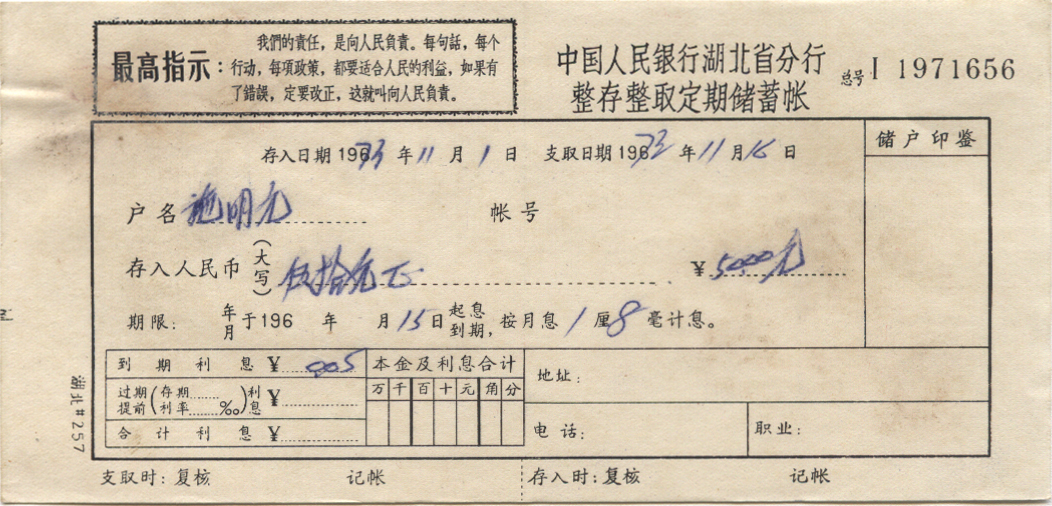 最高指示:
我們的責任，是向人民負責。每句話，每个
行动，每項政策，都要适合人民的利益，如果有
了錯誤，定要改正，这就叫向人民負責。
中国人民银行湖北省分行
整存整取定期储蓄帐
总号 I 1971656
存入日期 1973 年 11 月 1 日 支取日期 1973 年 11 月 15 日
储户印鉴
户名 施明元 帐号
存入人民币(大写) 伍拾元正 ¥ 5000元
期限: 年月于196 年 月 15 日起息到期, 按月息 1 厘 8 毫计息。
到期利息 ¥ 005
本金及利息合计
万 千 百 十 元 角 分
过期提前(存期 利率 ‰)利息 ¥
合计利息 ¥
地址:
电话:
职业:
湖北#257
支取时: 复核 记帐 存入时: 复核 记帐